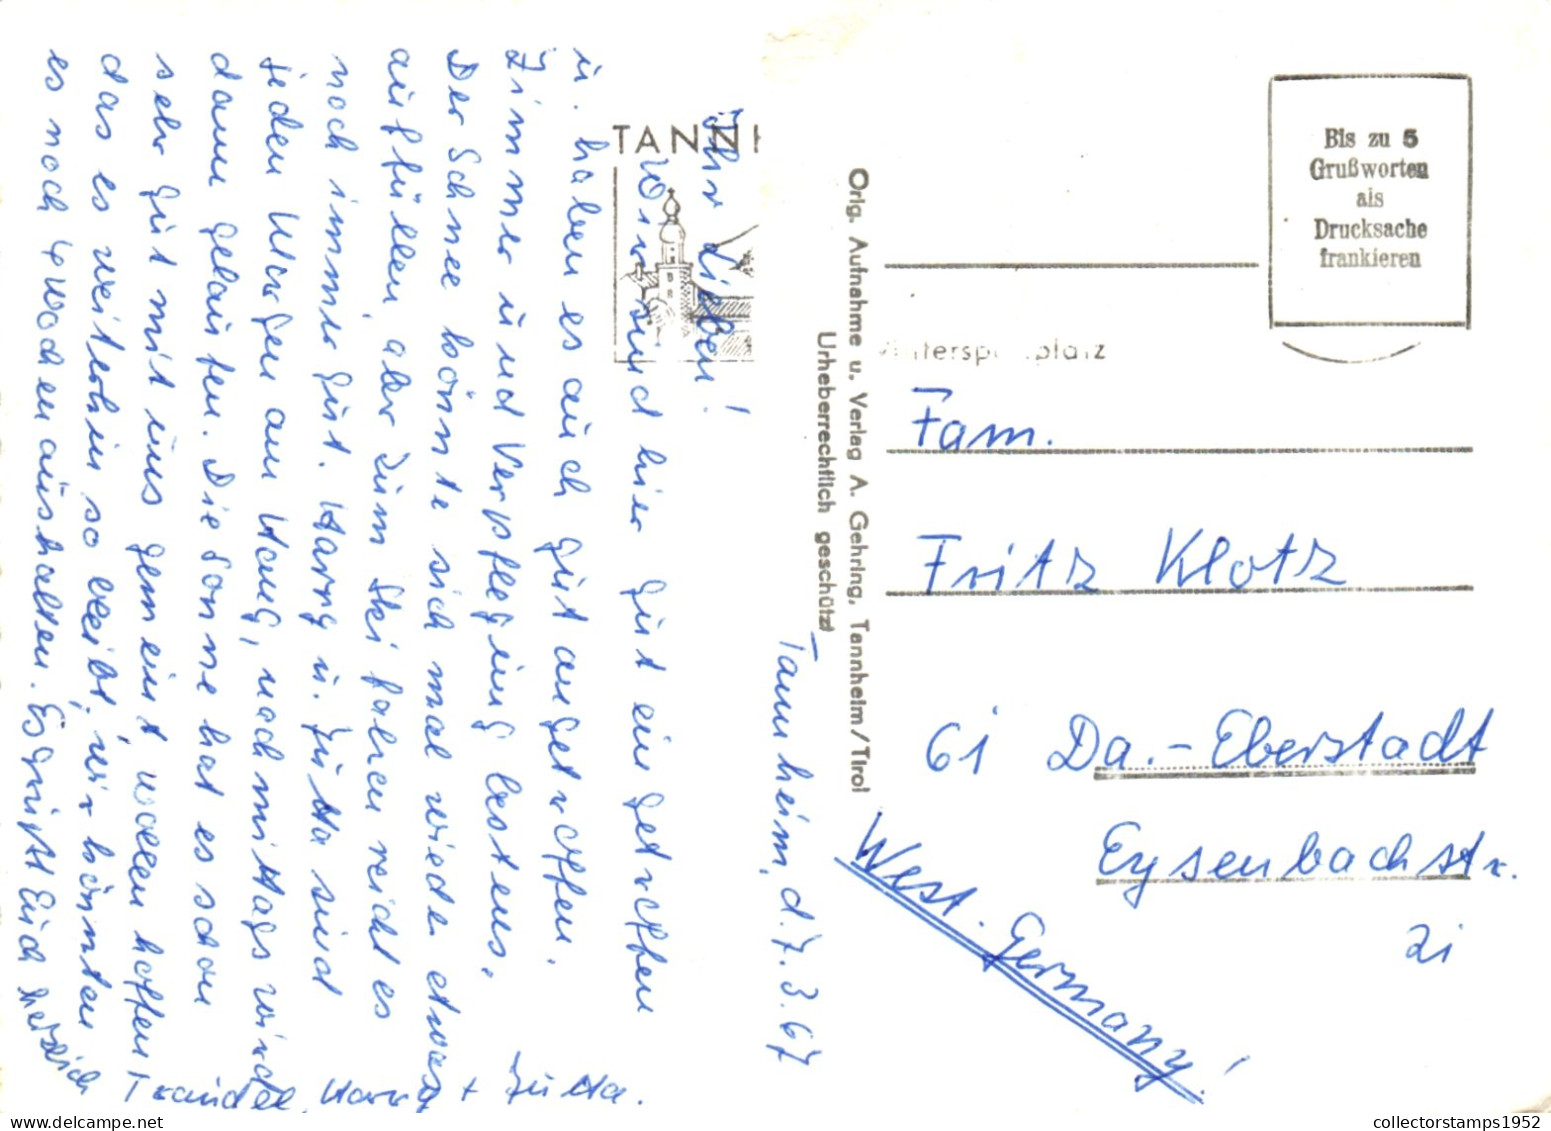 Tannheim, d. 7. 3. 67
Ihr Lieben!
Wir sind hier gut eingetroffen
u. haben es auch gut angetroffen.
Zimmer und Verpflegung bestens.
Der Schnee könnte sich mal wieder etwas
auffüllen, aber zum Ski fahren reicht es
noch immer gut. Harry u. Jutta sind
jeden Morgen am Hang, nachmittags wird
dann gelaufen. Die Sonne hat es schon
sehr gut mit uns gemeint, wollen hoffen
das es weiterhin so bleibt, wir könnten
es noch 4 Wochen aushalten. Es grüßt Euch herzlich
Traudel, Harry + Jutta.
TANNH
Orig. Aufnahme u. Verlag A. Gehring, Tannheim/Tirol
Urheberrechtlich geschützt
Bis zu 5
Grußworten
als
Drucksache
frankieren
Fam.
Fritz Klotz
61 Da.-Eberstadt
Eysenbachstr.
21
West-Germany!
collectorstamps1952